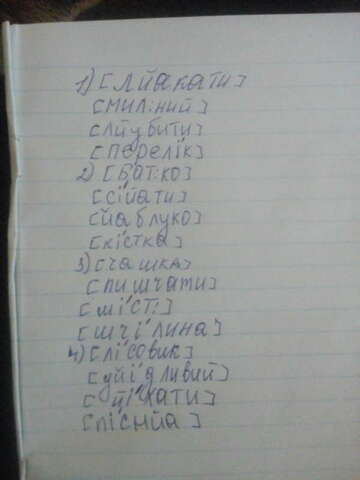 1) [лйакати]
[мил:ний]
[лйубити]
[перелік]
2) [бат:ко]
[сійати]
[йаблуко]
[кістка]
3) [чашка]
[пишчати]
[міст:]
[шчілина]
4) [лісовик]
[уйідливий]
[ціхати]
[піснйа]